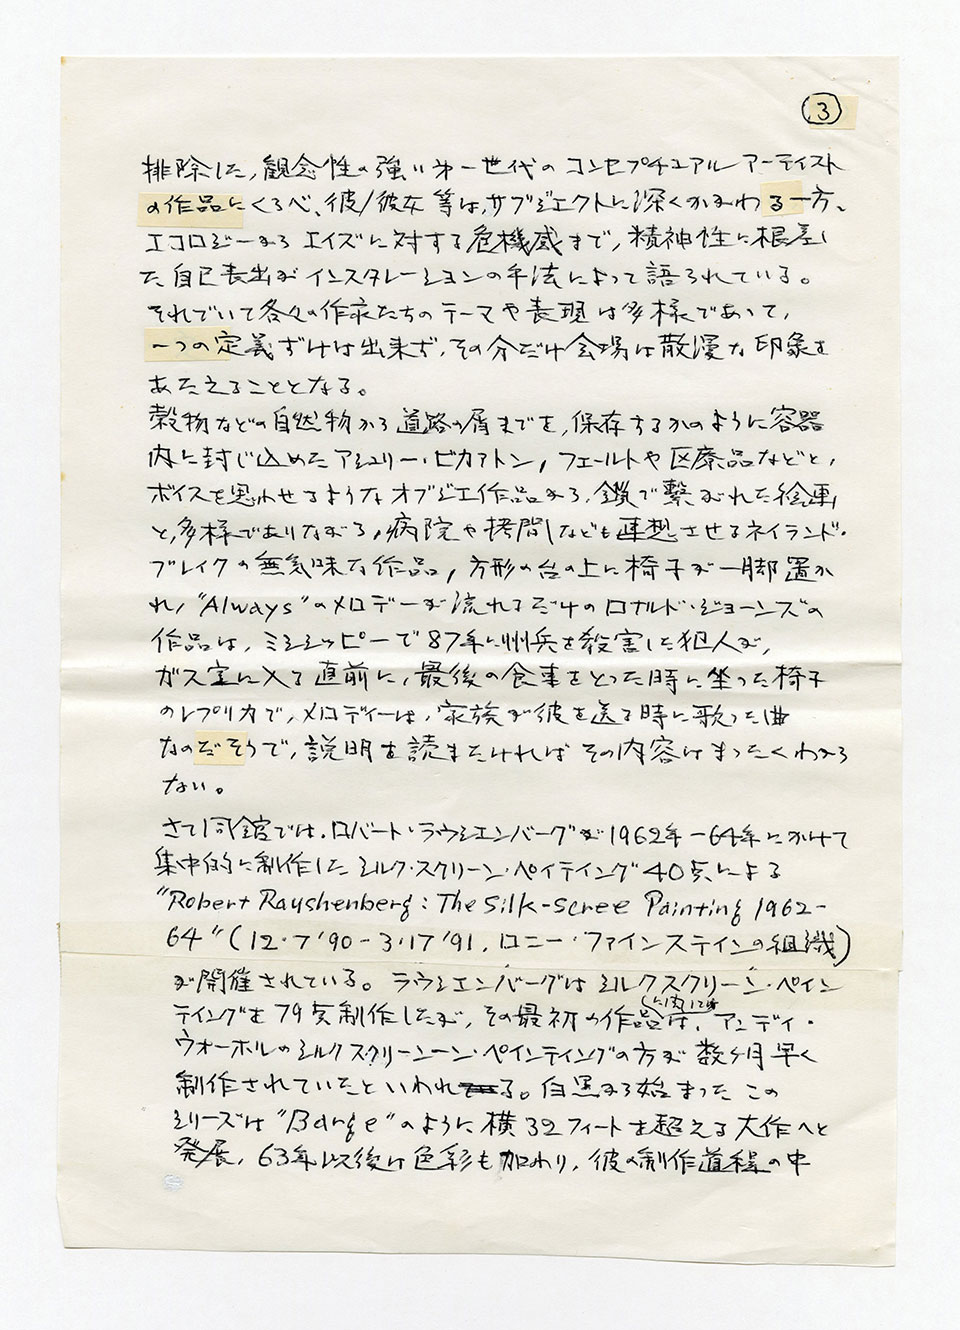 3
排除した、観念性の強い第一世代のコンセプチュアルアーティスト
の作品にくらべ、彼/彼女等は、サブジェクトに深くかかわる一方、
エコロジーからエイズに対する危機感まで、精神性に根差し
た自己表出がインスタレーションの手法によって語られている。
それでいて各々の作家たちのテーマや表現は多様であって、
一つの定義ずけは出来ず、その分だけ会場は散漫な印象を
あたえることとなる。
穀物などの自然物から道路の屑までを、保存するかのように容器
内に封じ込めたアシュリー・ビカアトン、フェールトや医療品などと、
ボイスを思わせるようなオブジェ作品から、鎖で繋がれた絵画
と、多様でありながら、病院や拷問なども連想させるネイランド・
ブレイクの無気味な作品、方形の台の上に椅子が一脚置か
れ、"Always"のメロデーが流れるだけのロナルド・ジョーンズの
作品は、ミシシッピーで87年に州兵を殺害した犯人が、
ガス室に入る直前に、最後の食事をとった時に坐った椅子
のレプリカで、メロディーは、家族が彼を送る時に歌った曲
なのだそうで、説明を読まなければその内容はまったくわから
ない。
さて同館では、ロバート・ラウシェンバーグが1962年-64年にかけて
集中的に制作したシルク・スクリーン・ペイティング40点による
"Robert Raushenberg: The Silk-Scree Painting 1962-
64"(12・7'90-3・17'91、ロニー・ファインステインの組織)
が開催されている。ラウシェンバーグはシルクスクリーン・ペイン
ティングを79点制作したが、その最初の作品は、アンディ・
ウォーホルのシルクスクリーンーン・ペインティングの方が数ヶ月早く
制作されていたといわれる。白黒から始まったこの
シリーズは"Barge"のように横32フィートを超える大作へと
発展、63年以後は色彩も加わり、彼の制作道程の中